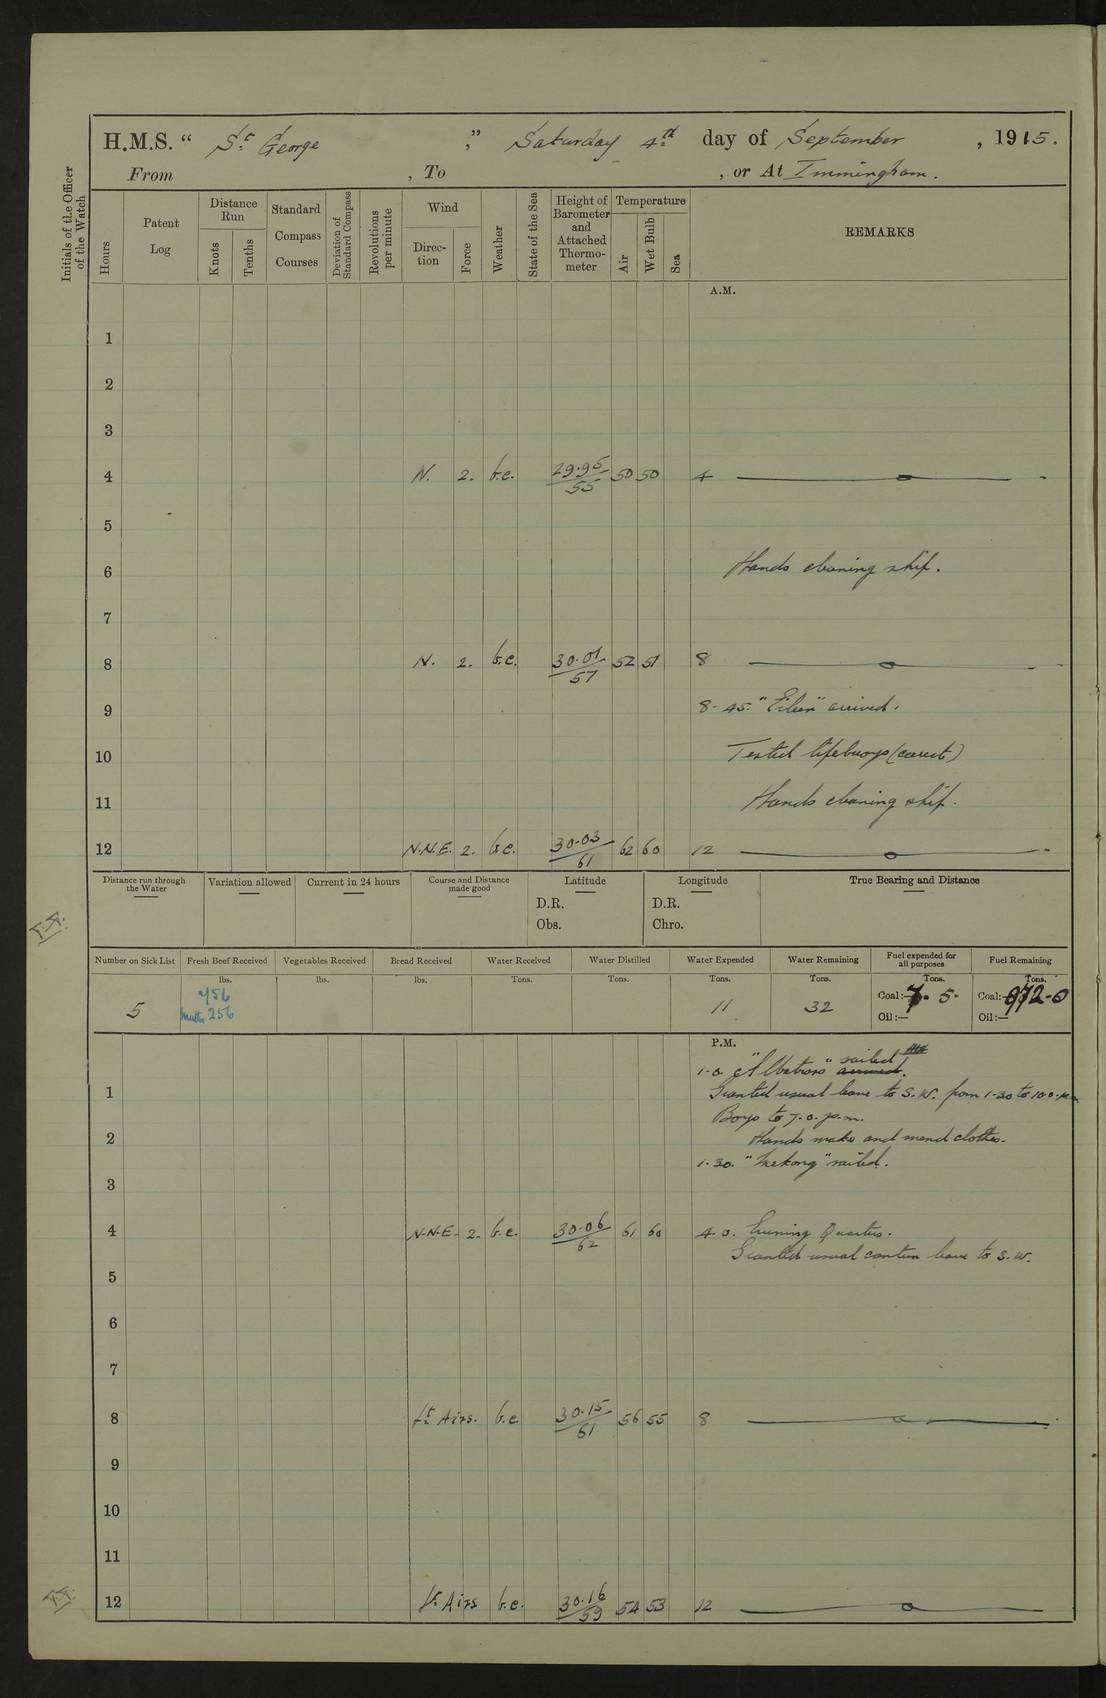 H.M.S. “ St. George ,” Saturday 4th day of September , 1915.
From , To , or At Immingham.
Initials of the Officer of the Watch
Hours
Patent Log
Distance Run
Knots
Tenths
Standard Compass Courses
Deviation of Standard Compass
Revolutions per minute
Wind
Direc-tion
Force
Weather
State of the Sea
Height of Barometer and Attached Thermo-meter
Temperature
Air
Wet Bulb
Sea
REMARKS
A.M.
1
2
3
4 N. 2. b.c. 29.95/55 50 50 4
5
6 Hands cleaning ship.
7
8 N. 2. b.c. 30.01/57 52 51 8
9 8-45. " " arrived.
10 Tested lifebuoys (correct)
11 Hands cleaning ship.
12 N.N.E. 2. b.c. 30.03/61 62 60 12
Distance run through the Water
Variation allowed
Current in 24 hours
Course and Distance made good
Latitude
D.R.
Obs.
Longitude
D.R.
Chro.
True Bearing and Distance
Number on Sick List
Fresh Beef Received
Vegetables Received
Bread Received
Water Received
Water Distilled
Water Expended
Water Remaining
Fuel expended for all purposes
Fuel Remaining
lbs. lbs. lbs. Tons. Tons. Tons. Tons. Tons. Tons.
5 456 11 32 Coal:— 7. 5. Coal:— 972-0
256 Oil:— Oil:—
P.M.
1-0. "Albatross" sailed arrived.
1 Granted usual leave to S.W. from 1-30 to 10.0. p.m.
Boys to 7.0. p.m.
2 Hands make and mend clothes.
1-30. "Mekong" sailed.
3
4 N.N.E. 2. b.c. 30.06/62 61 60 4.0. Evening Quarters.
Granted usual canteen leave to S.W.
5
6
7
8 Lt. Airs. b.c. 30.15/61 56 55 8
9
10
11
12 Lt. Airs b.c. 30.16/59 54 53 12